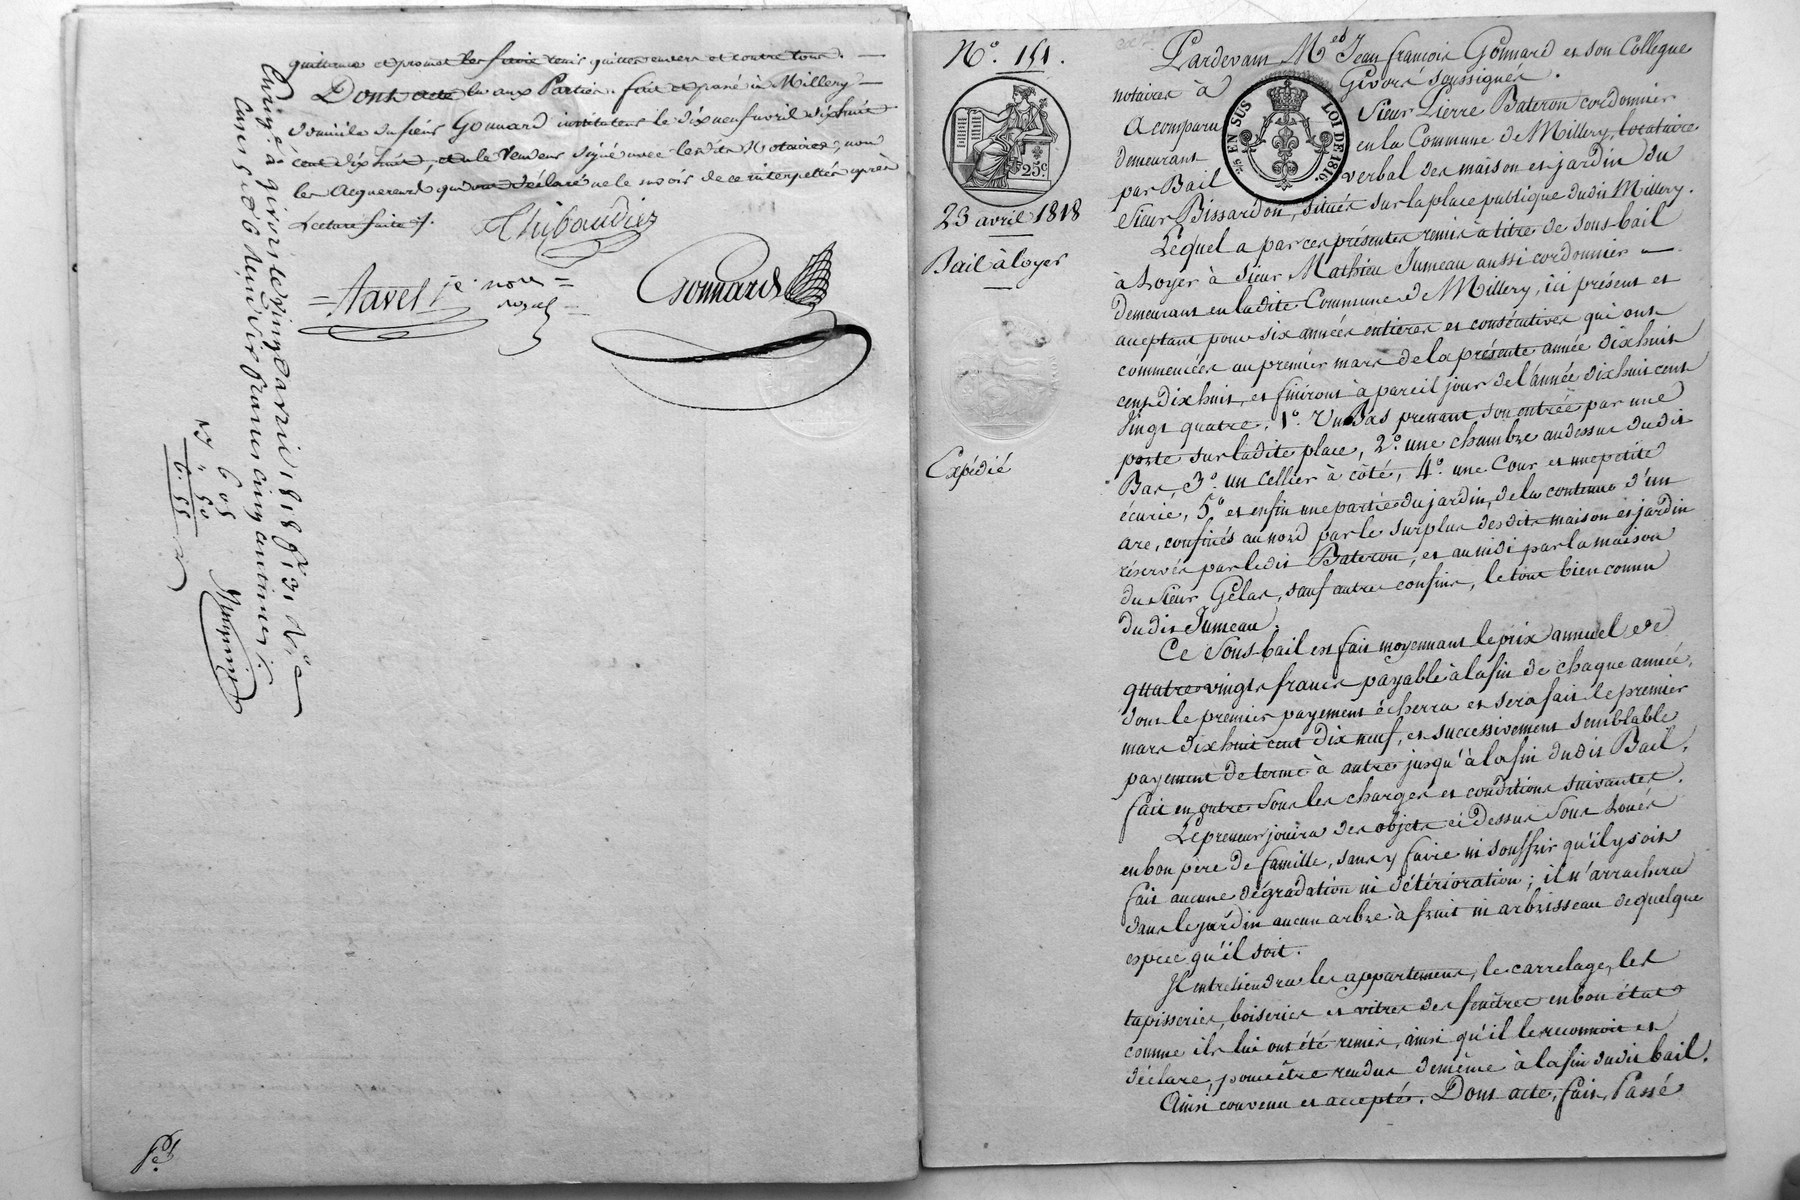 quittance et promet les faire tenir quittes envers et contre tous.
Dont acte lu aux Parties. fait et passé à Millery
domicile du sieur Gonnard le dix neuf avril dix huit
cent dix huit, et le Vendeur signé avec lesdits Notaires, non
les Acquereurs qui ont déclaré ne le savoir de ce interpellés après
Lecture faite ./.
Thibaudier
Navel je
Gonnard
Enrgé à givors le vingt avril 1818 f° 31 R°
Cases 5 et 6 Reçu six francs cinq centimes
6 05
" 60
6. 65
N°. 151.
25c
23 avril 1818
Bail à loyer
Expédié
Pardevant Mes Jean françois Gonnard et son Collegue
notaires à Givors soussignés.
EN SUS
LOI DE 1816.
A comparu Sieur Pierre Bateron cordonnier
demeurant en la Commune de Millery, locataire
par Bail verbal des maison et jardin du
sieur Bissardon, situés sur la place publique dudit Millery.
Lequel a par ces présentes remis à titre de sous-bail
à Loyer à sieur Mathieu Jumeau aussi cordonnier
demeurant en ladite Commune de Millery, ici présent et
acceptant pour six années entieres et consécutives qui ont
commencées au premier mars de la présente année dix huit
cent dix huit, et finiront à pareil jour de l'année dix huit cent
Vingt quatre, 1°. Un Bas prenant son entrée par une
porte sur ladite place, 2°. une chambre au dessus dudit
Bas, 3°. un Cellier à côté, 4°. une Cour et une petite
écurie, 5°. et enfin une partie du jardin, de la contenue d'un
are, confinés au nord par le surplus desdits maison et jardin
réservés par ledit Bateron, et au midi par la maison
du sieur Gélas, sauf autres confins, le tout bien connu
dudit Jumeau.
Ce sous-bail est fait moyennant le prix annuel de
quatre vingts francs payable à la fin de chaque année,
dont le premier payement écherra et sera fait le premier
mars dix huit cent dix neuf, et successivement semblable
payement de terme à autre jusqu'à la fin dudit Bail,
fait en outre sous les charges et conditions suivantes.
Le preneur jouira des objets ci dessus sous Loués
en bon père de famille, sans y faire ni souffrir qu'il y soit
fait aucune dégradation ni détérioration; il n'arrachera
dans le jardin aucun arbre à fruit ni arbrisseau de quelque
espece qu'il soit.
Il entretiendra les appartemens, le carrelage, les
tapisseries, boiseries et vitres des fenêtres en bon état
comme ils lui ont été remis, ainsi qu'il le reconnoit et
déclare, pour être rendus de même à la fin dudit bail.
Ainsi convenu et accepté. Dont acte, fait, Passé